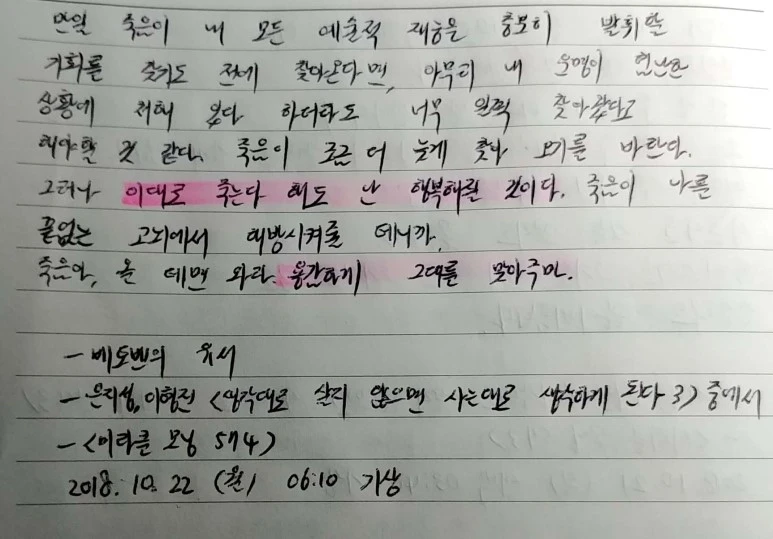 만일 죽음이 내 모든 예술적 재능을 충분히 발휘할
기회를 갖기도 전에 찾아온다면, 아무리 내 운명이 험난한
상황에 처해 있다 하더라도 너무 일찍 찾아왔다고
해야할 것 같다. 죽음이 조금 더 늦게 찾아 오기를 바란다.
그러나 이대로 죽는다 해도 난 행복해할 것이다. 죽음이 나를
끝없는 고뇌에서 해방시켜줄 테니까.
죽음아, 올 테면 와라. 용감하게 그대를 맞아주마.
- 베토벤의 유서
- 은지성, 이형진 <생각대로 살지 않으면 사는대로 생각하게 된다 3> 중에서
- <미라클 모닝 574>
2018. 10. 22 (월) 06:10 기상